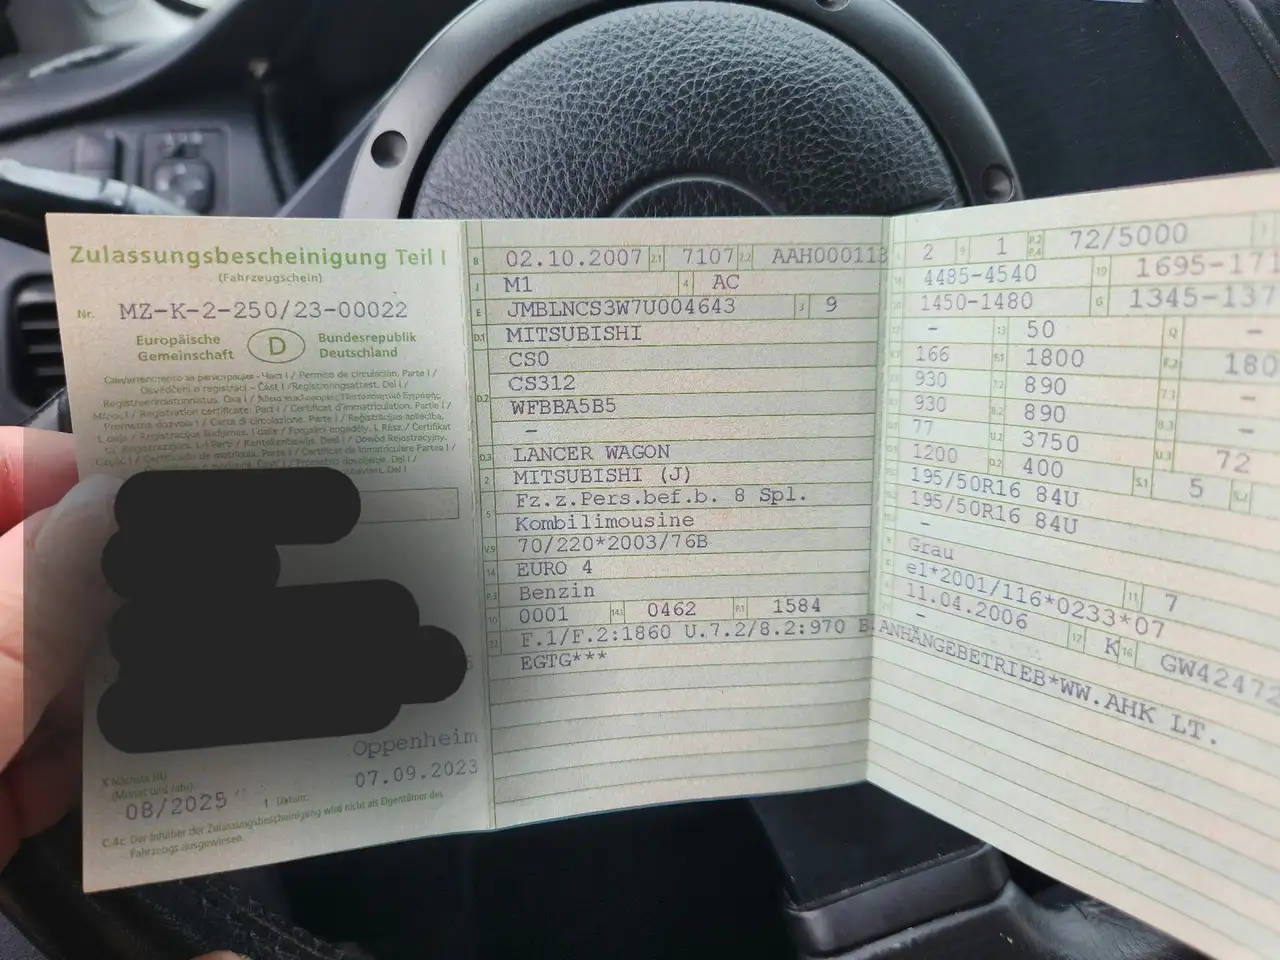 Zulassungsbescheinigung Teil I
(Fahrzeugschein)
Nr. MZ-K-2-250/23-00022
Europäische Gemeinschaft D Bundesrepublik Deutschland
Osvědčení o registraci - Část I / Registreringsattest. Del I /
X Nächste HU
(Monat und Jahr):
08/2025
Oppenheim
I Datum: 07.09.2023
C.4c. Der Inhaber der Zulassungsbescheinigung wird nicht als Eigentümer des
Fahrzeugs ausgewiesen.
B 02.10.2007 2.1 7107 2.2 AAH000113
J M1 4 AC
E JMBLNCS3W7U004643 3 9
D.1 MITSUBISHI
CS0
D.2 CS312
WFBBA5B5
-
D.3 LANCER WAGON
2 MITSUBISHI (J)
5 Fz.z.Pers.bef.b. 8 Spl.
Kombilimousine
V.9 70/220*2003/76B
14 EURO 4
P.3 Benzin
10 0001 14.1 0462 P.1 1584
22 F.1/F.2:1860 U.7.2/8.2:970 B.ANHÄNGEBETRIEB*WW.AHK LT.
EGTG***
L 2 9 1 P.2 P.4 72/5000
18 4485-4540 19 1695-171
20 1450-1480 G 1345-137
- 13 50 Q -
166 F.1 1800 F.2 180
930 7.2 890 7.3 -
930 8.2 890 8.3 -
77 U.2 3750 U.3 72
1200 O.2 400 S.1 5 S.2
195/50R16 84U
195/50R16 84U
-
Grau
e1*2001/116*0233*07 11 7
11.04.2006 17 K 16 GW42472
-